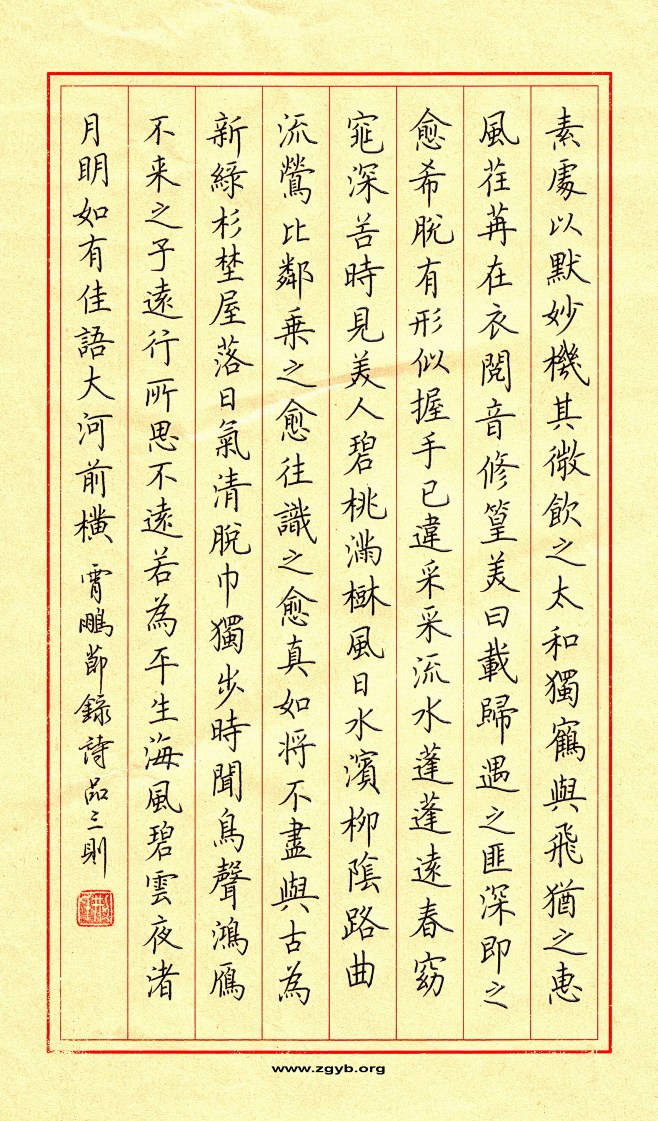 素處以默妙機其微飲之太和獨鶴與飛猶之惠
風荏苒在衣閱音修篁美曰載歸遇之匪深即之
愈希脫有形似握手已違采采流水蓬蓬遠春窈
窕深苦時見美人碧桃滿樹風日水濱柳陰路曲
流鶯比鄰乗之愈往識之愈真如将不盡與古為
新綠杉埜屋落日氣清脫巾獨步時聞鳥聲鴻鴈
不来之子遠行所思不遠若為平生海風碧雲夜渚
月明如有佳語大河前橫 霄鵬節錄詩品三則
www.zgyb.org